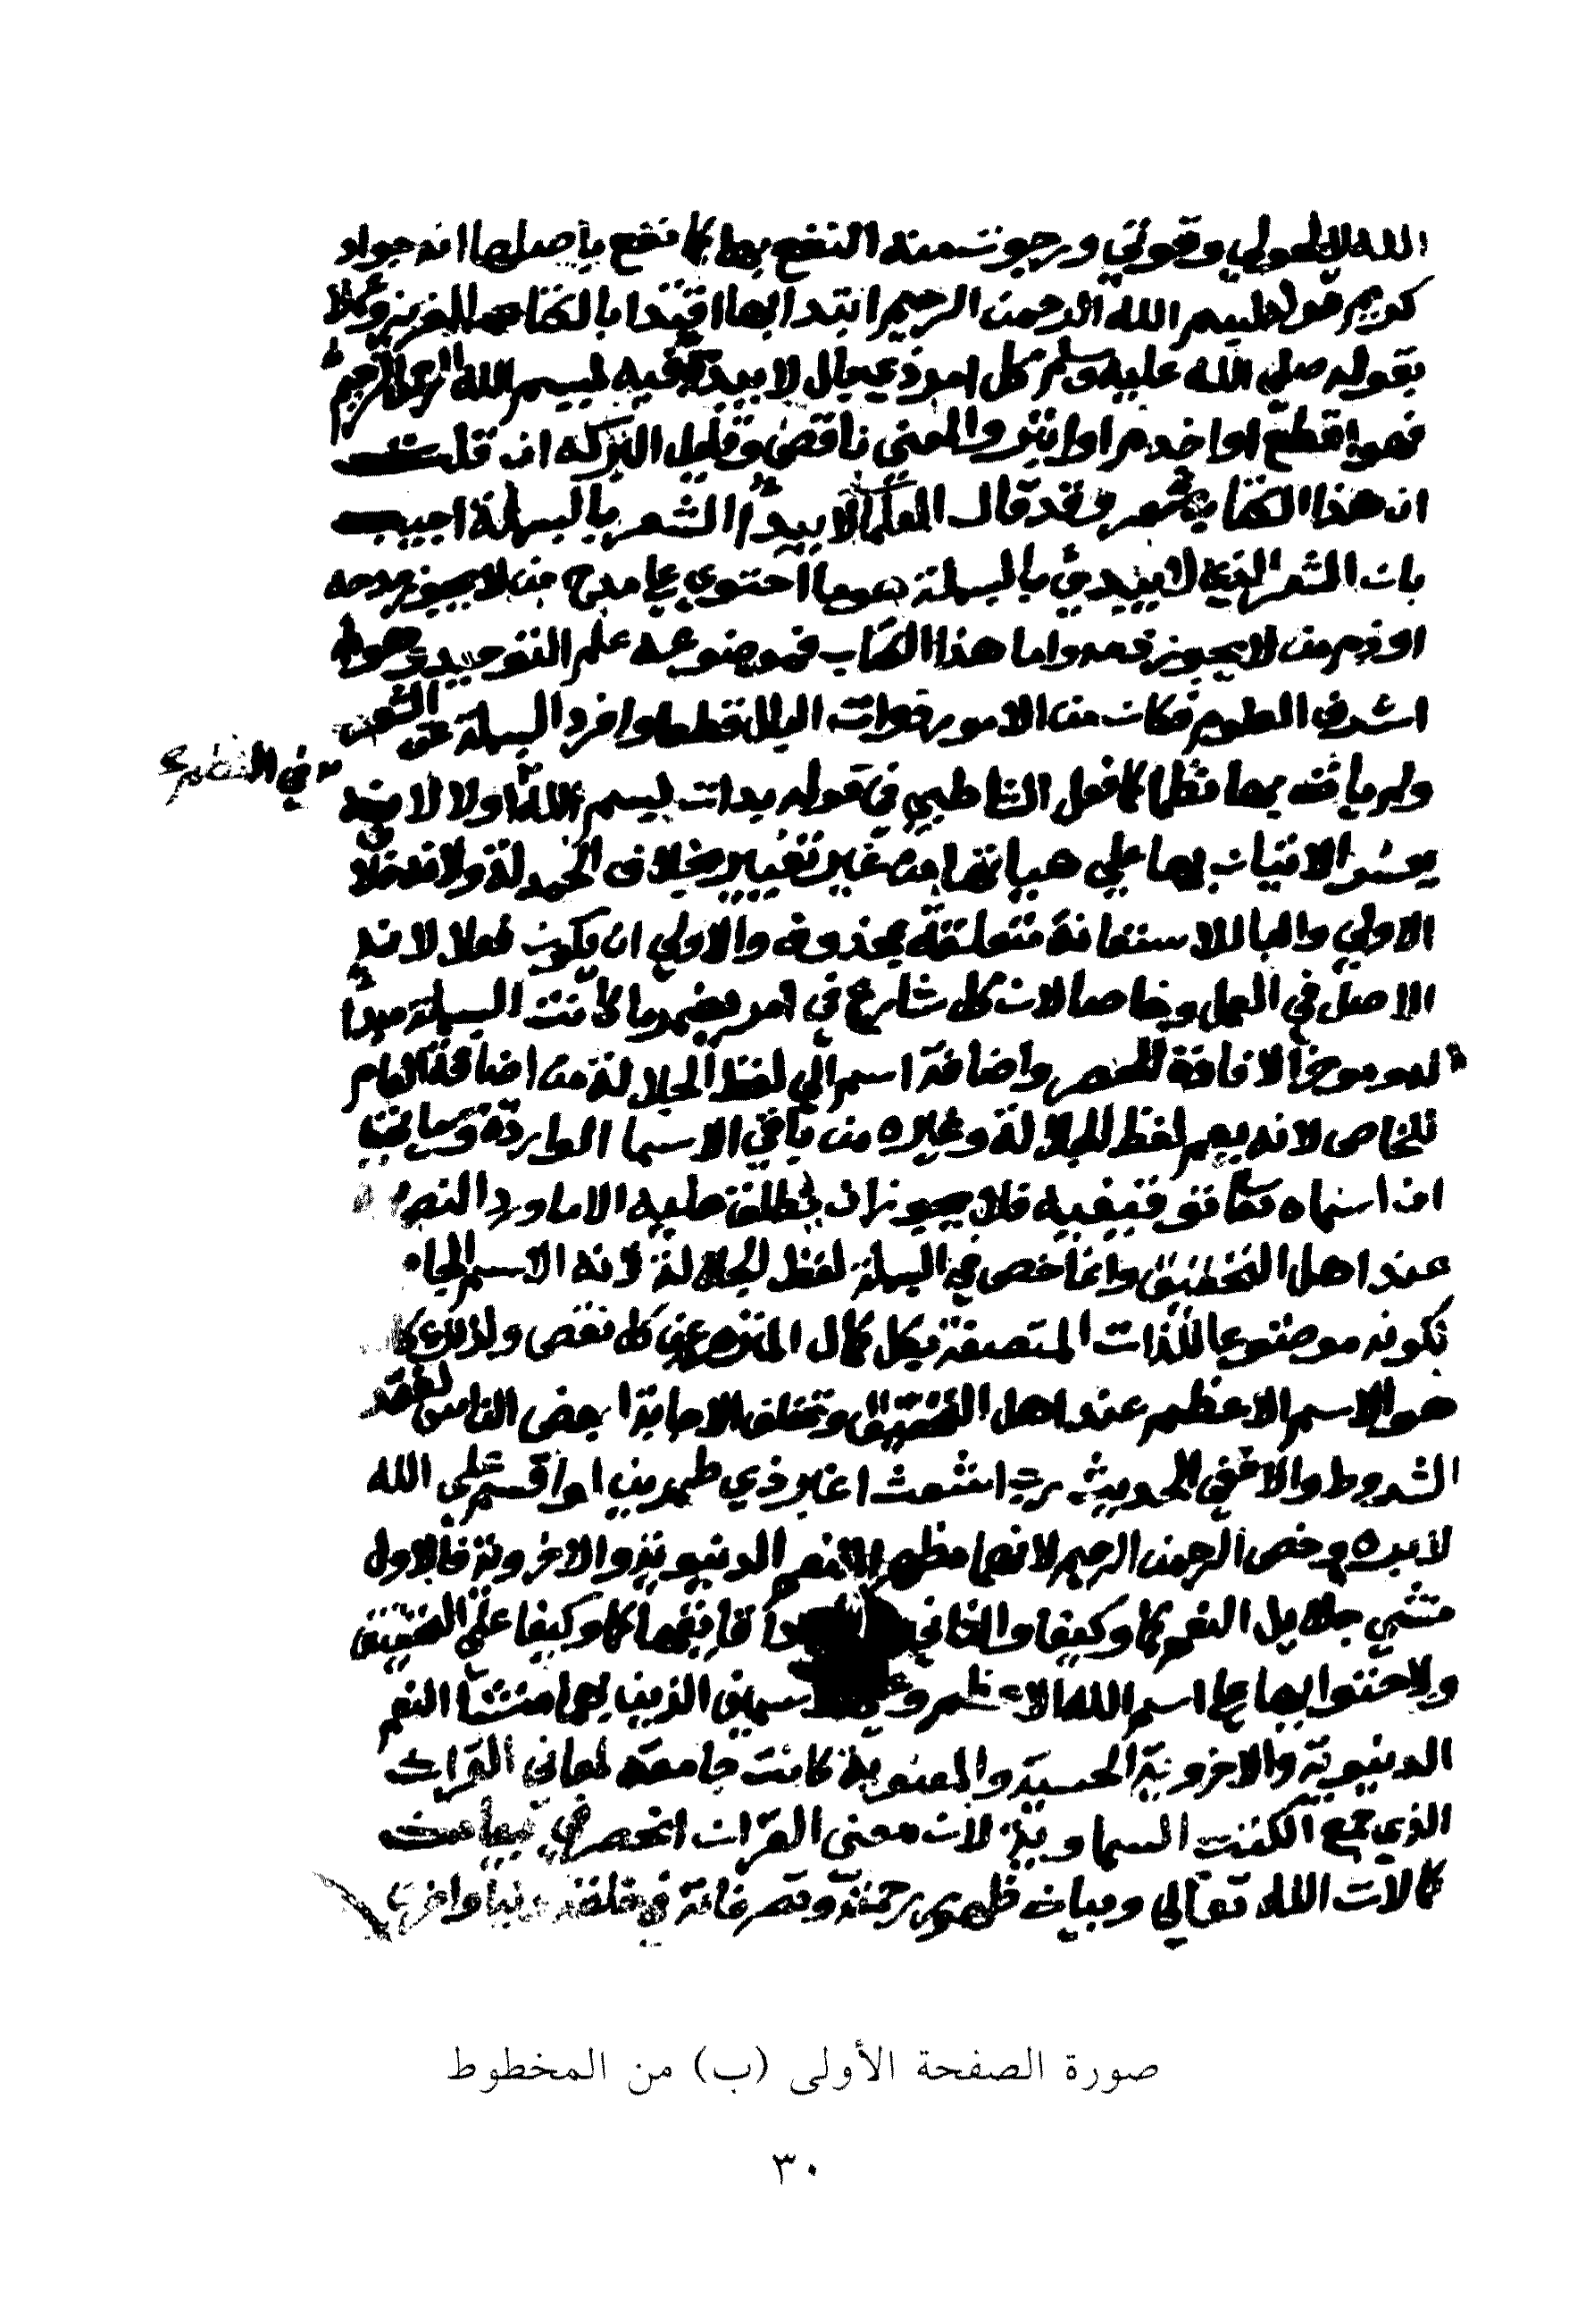 الله لا بحولي وقوتي ورجوت منه النفع بها كما نفع باصلها انه جواد
كريم قوله بسم الله الرحمن الرحيم ابتدا بها اقتدا بالكتاب العزيز وعملا
بقوله صلي الله عليه وسلم كل امر ذي بال لا يبدا فيه ببسم الله الرحمن الرحيم
فهو اقطع او اجذم او ابتر والمعني ناقص وقليل البركه ان قلت
ان هذا الكتاب شعر وقد قال العلما لا يبدأ الشعر بالبسملة اجيب
بان الشعر الذي لا يبدئ بالبسملة هو ما احتوي علي مدح من لا يجوز مدحه
او ذم من لا يجوز ذمه واما هذا الكتاب فموضوعه علم التوحيد وهو
اشرف العلوم فكان من الامور ذوات البال قطعا وافرد البسملة عن الشعر
في النظم
ولم يات بها نظما كما فعل الشاطبي في قوله بدات ببسم الله اولا لانه
يعسر الاتيان بها علي هياتها من غير تغيير بخلاف الحمدلة ولانه خلاف
الاولي والبا للاستعانة متعلقة بمحذوف والاولي ان يكون فعلا لانه
الاصل في العمل وخاصا لان كل شارع في امر يضمر ما كانت البسملة مبدأ
له وموخرا لافادة الحصر واضافة اسم الي لفظ الجلالة من اضافة العام
للخاص لانه يعم لفظ الجلالة وغيره من باقي الاسما الواردة وسياتي
ان اسماه توقيفيه فلا يجوز ان يطلق عليه الا ما ورد النص
عند اهل التحقيق وانما خص في البسملة لفظ الجلالة لانه الاسم الجامع
لكونه موضوعا للذات المتصفة بكل كمال المنزه عن كل نقص ولذلك كان
هو الاسم الاعظم عند اهل التحقيق وتخلف الاجابة ا بعض الناس لفقد
الشروط والا ففي الحديث رب اشعث اغبر ذي طمرين لو اقسم علي الله
لابره وخص الرحمن الرحيم لانهما مظهر النعم الدنيويه والاخرويه فالاول
منشي جلايل النعم كما وكيفا والثاني دقايقها كما وكيفا علي التحقيق
ولاحتوايها علي اسم الله الاعظم و الاسمين الذين بهما منشا النعم
الدنيوية والاخروية الحسية والمعنوية كانت جامعة لمعاني القران
الذي جمع الكتب السماوية لان معني القران انحصر في بيان
كمالات الله تعالي وبيان ظهور رحمته وتصرفاته في خلقه دنيا واخري
صورة الصفحة الأولى (ب) من المخطوط
٣٠